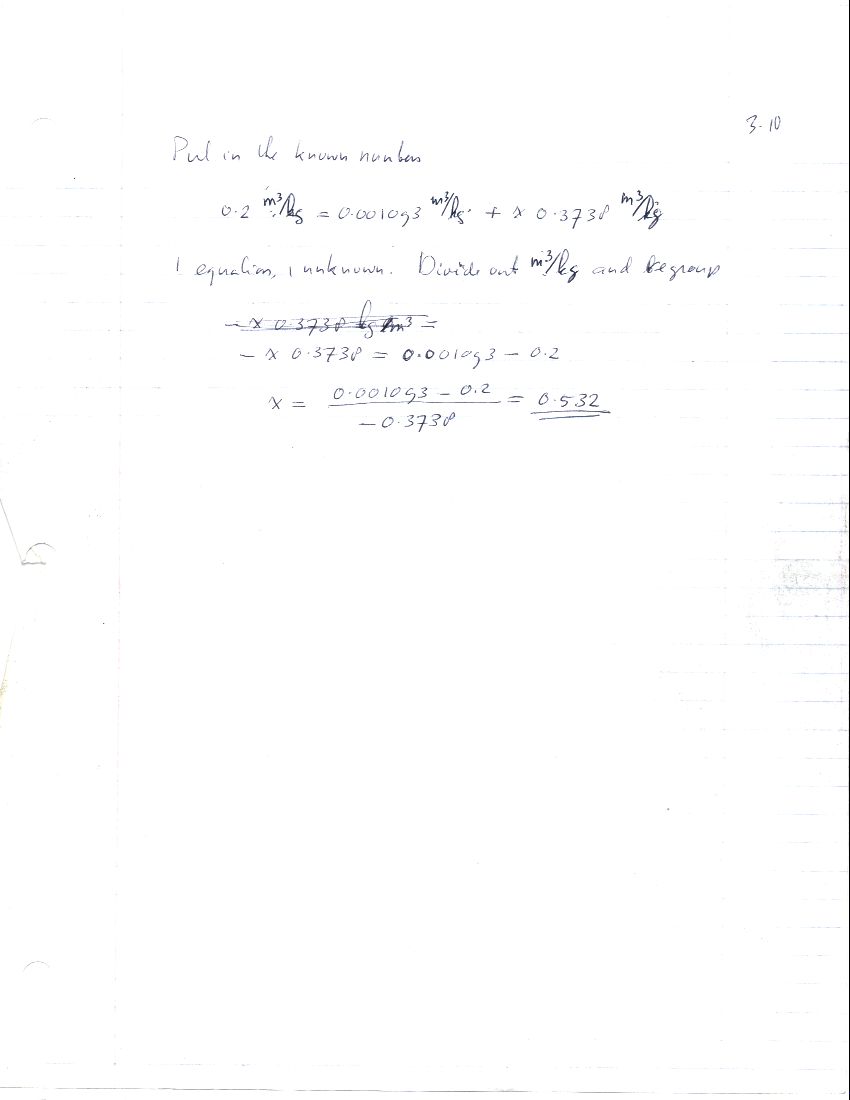 3-10
Put in the known numbers
0.2 m³/kg = 0.001093 m³/kg + x 0.3738 m³/kg
1 equation, 1 unknown. Divide out m³/kg and regroup
- x 0.3738 kg/m³ =
- x 0.3738 = 0.001093 - 0.2
x = (0.001093 - 0.2) / (-0.3738) = 0.532